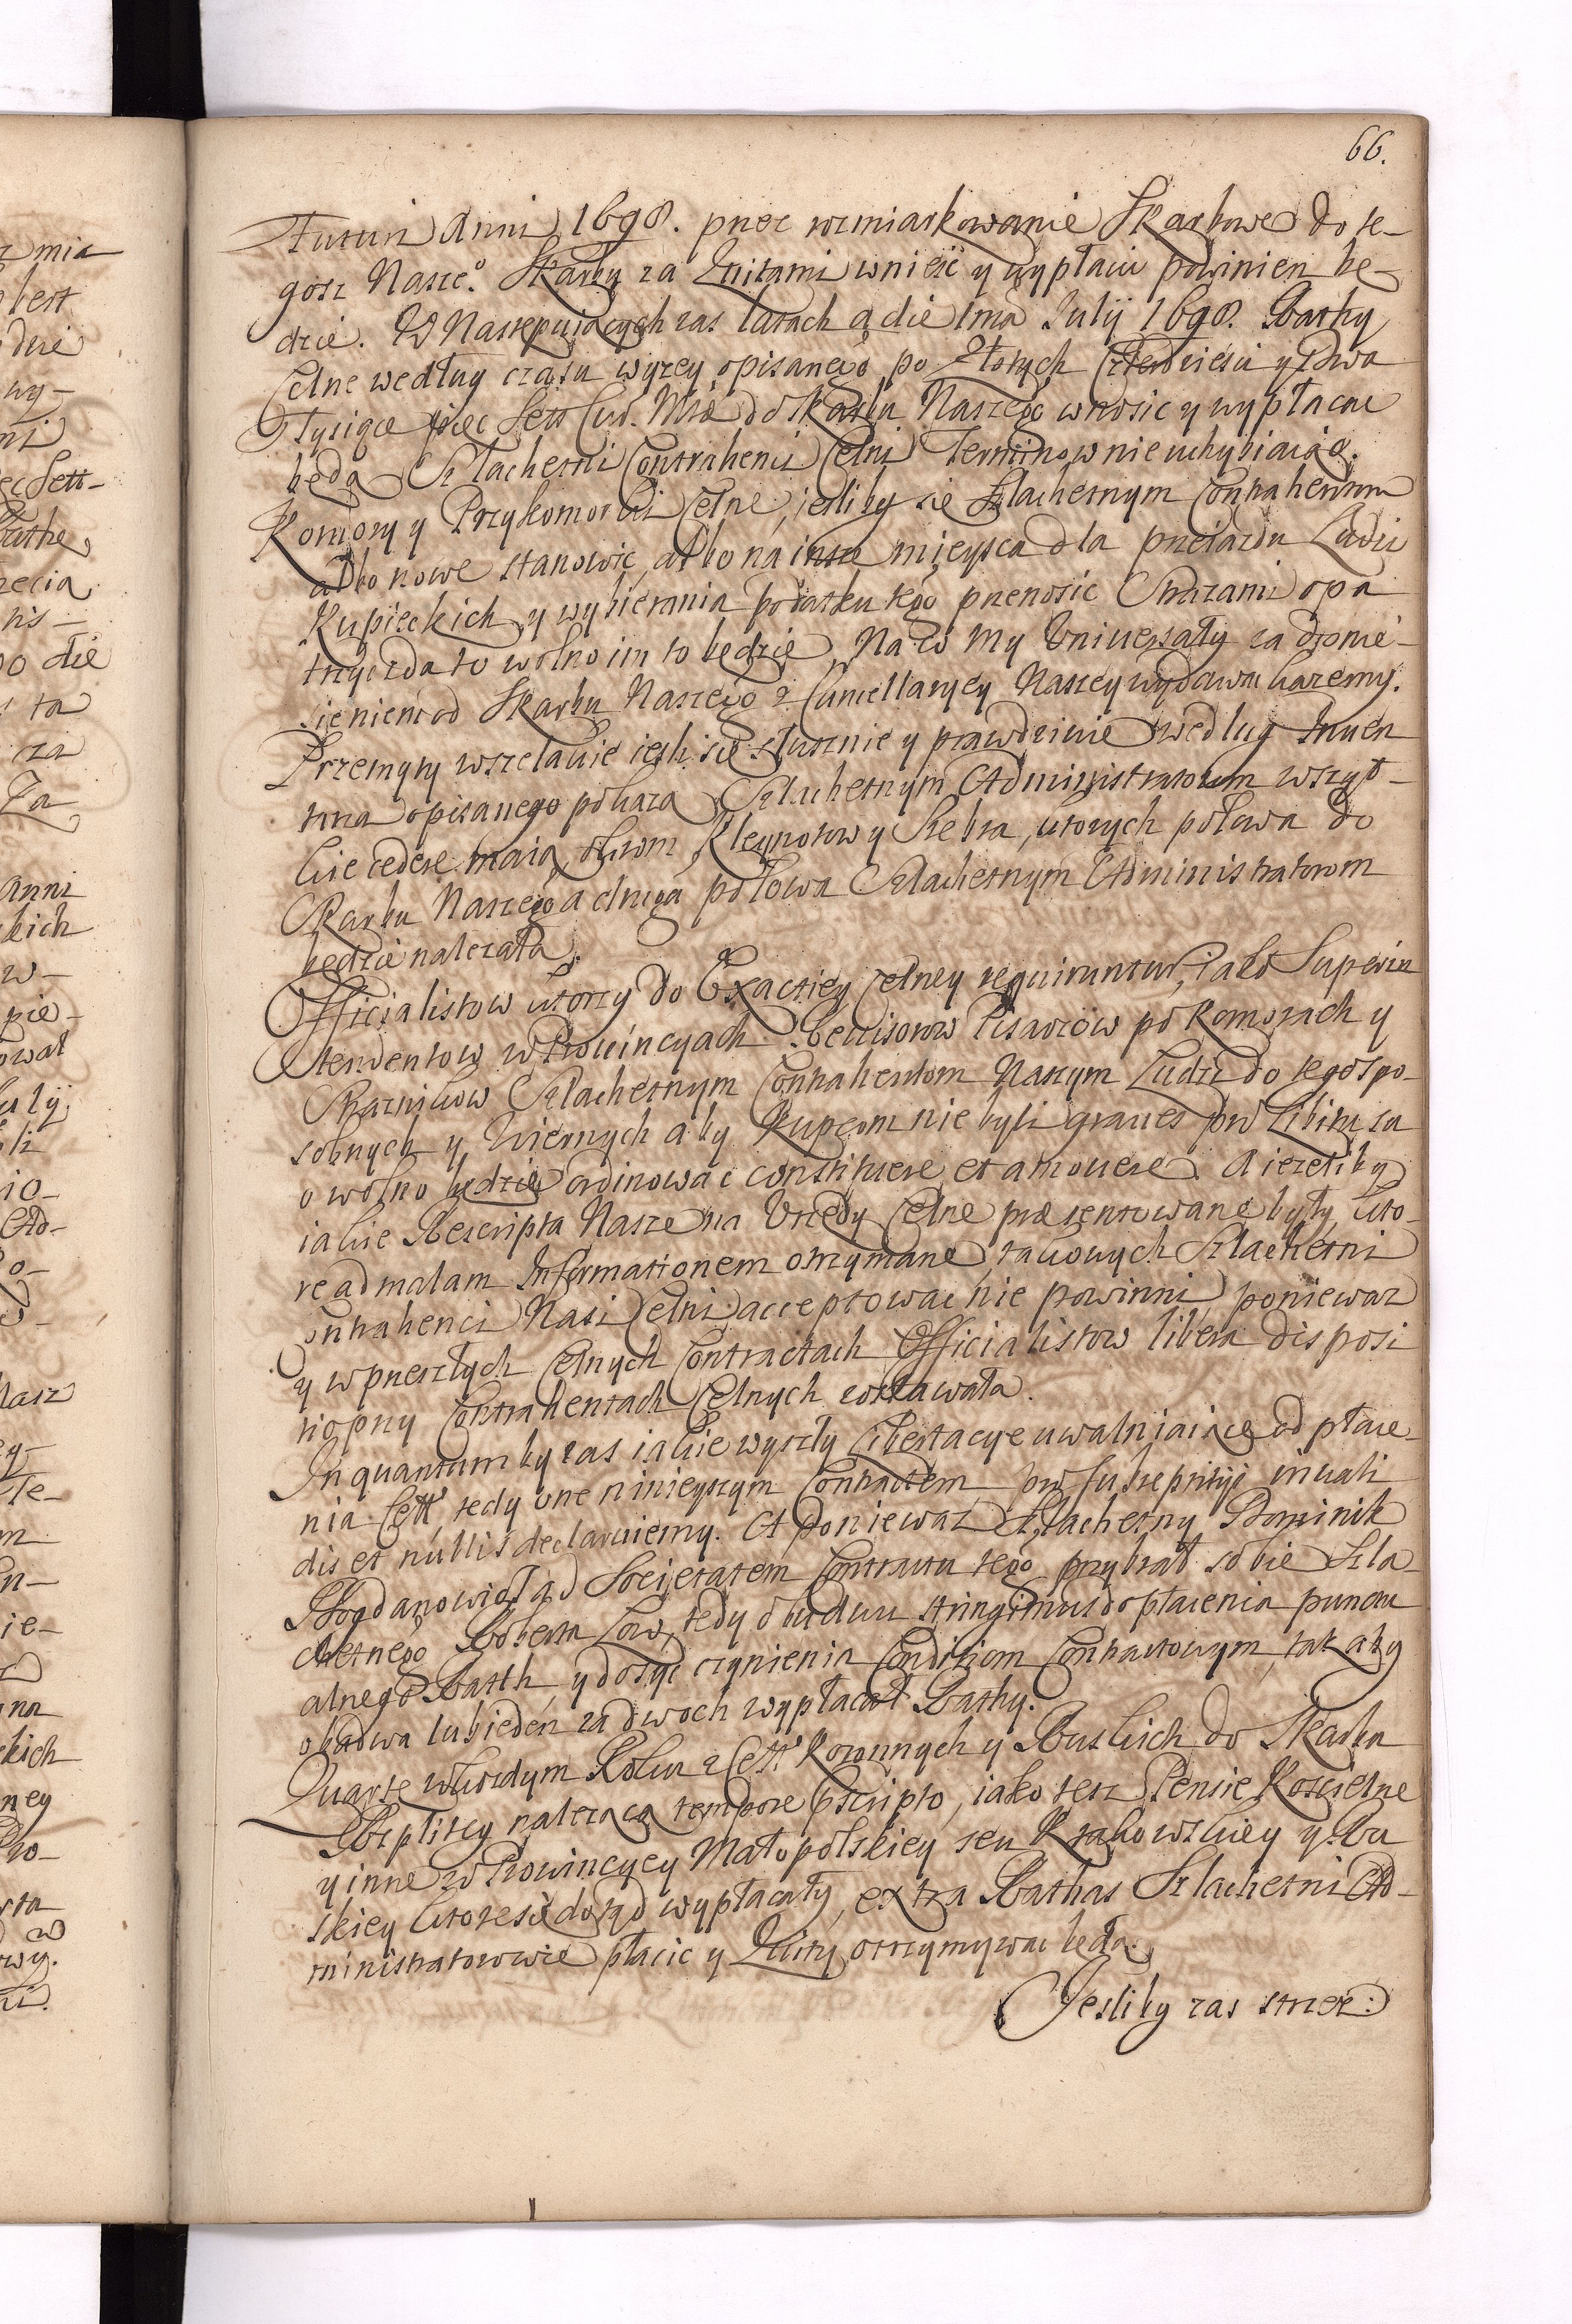 66.
turum Anni 1698. przez rozmiarkowanie Skarbowe do te-
gosz Nasze.o Skarbu za kwitami wnieść y wypłacic powinien be-
dzie. W Nastepuiących zas latach a die 1ma Julij 1698. Rathy
Celne wedlug czasu wyzey opisanego po Złotych Czterdziesci y dwa
Tysiące piec Sett Cur. Mtæ do Skarbu Naszego wnosic y wypłacac
będą Szlachetni Contrahenci Celni Terminow nie uchybiaiąc.
Komory y Przykomorki Celne, iesliby sie Szlachetnym Contrahentom
albo nowe stanowic, albo na insze mieysca dla przeiazdu Ludzi
Kupieckich y wybierania podatku tego przenosic Strazami opa
trzyc zdało wolno im to będzie, Na co My Uniwersały za donie-
sieniem od Skarbu Naszego z Cancellaryey Naszey wydawac kazemy.
Przemyty wszelakie iesli sie słusznie y prawdziwie według Inuen
tarza opisanego pokaza Szlachetnym Administratorom wszyt-
kie cedere maią, oprocz Kleynotow y Srebra, ktorych połowa do
Skarbu Naszego a druga połowa Szlachetnym Administratorom
będzie nalezała.
Officialistow ktorzy do Exactiey Celney requiruntur, iako Superin
tendentow w Prowincyach Rewisorow Pisarzow po Komorach y
Straznikow Szlachetnym Contrahentom Naszym Ludzi do tego spo-
sobnych y wiernych aby Kupcom nie byli graues pro Libitu su
o wolno będzie ordinowac constituere et amouere. A iezeliby
iakie Rescripta Nasze na Urzędy Celne præsentowane były, kto-
re ad malam Informationem otrzymane, takowych Szlachetni
Contrahenci Nasi Celni acceptowac nie powinni, poniewaz
y w przeszłych Celnych Contractach Officialistow libera disposi
tio przy Contrahentach Celnych zostawała.
In quantum by zas iakie wyszły Libertacye uwalniaiące od płace-
nia Cełł, tedy one ninieyszym Contractem, pro subreptitijs inuali
dis et nullis declaruiemy. A poniewaz Szlachetny Dominik
Bogdanowicz ad Societatem Contractu tego przybrał sobie Szla-
chetnego Roberta Low, tedy obudwu stringimus do płacenia punctu
alnego Rath, y dosyc czynienia Conditiom Contractowym, tak aby
obadwa lub ieden za dwoch wypłacał Rathy.
Quartę w kozdym Roku z Cełł Koronnych y Ruskich do Skarbu
Rzplitey nalezącą tempore præscripto, iako tesz Pensie Koscielne
y inne w Prowincyey Małopolskiey seu Krakowskiey y Ru
skiey ktore sie dotąd wypłacały, extra Rathas Szlachetni Ad-
ministratorowie płacic y kwity otrzymywac będą.
Jesliby zas strzez: